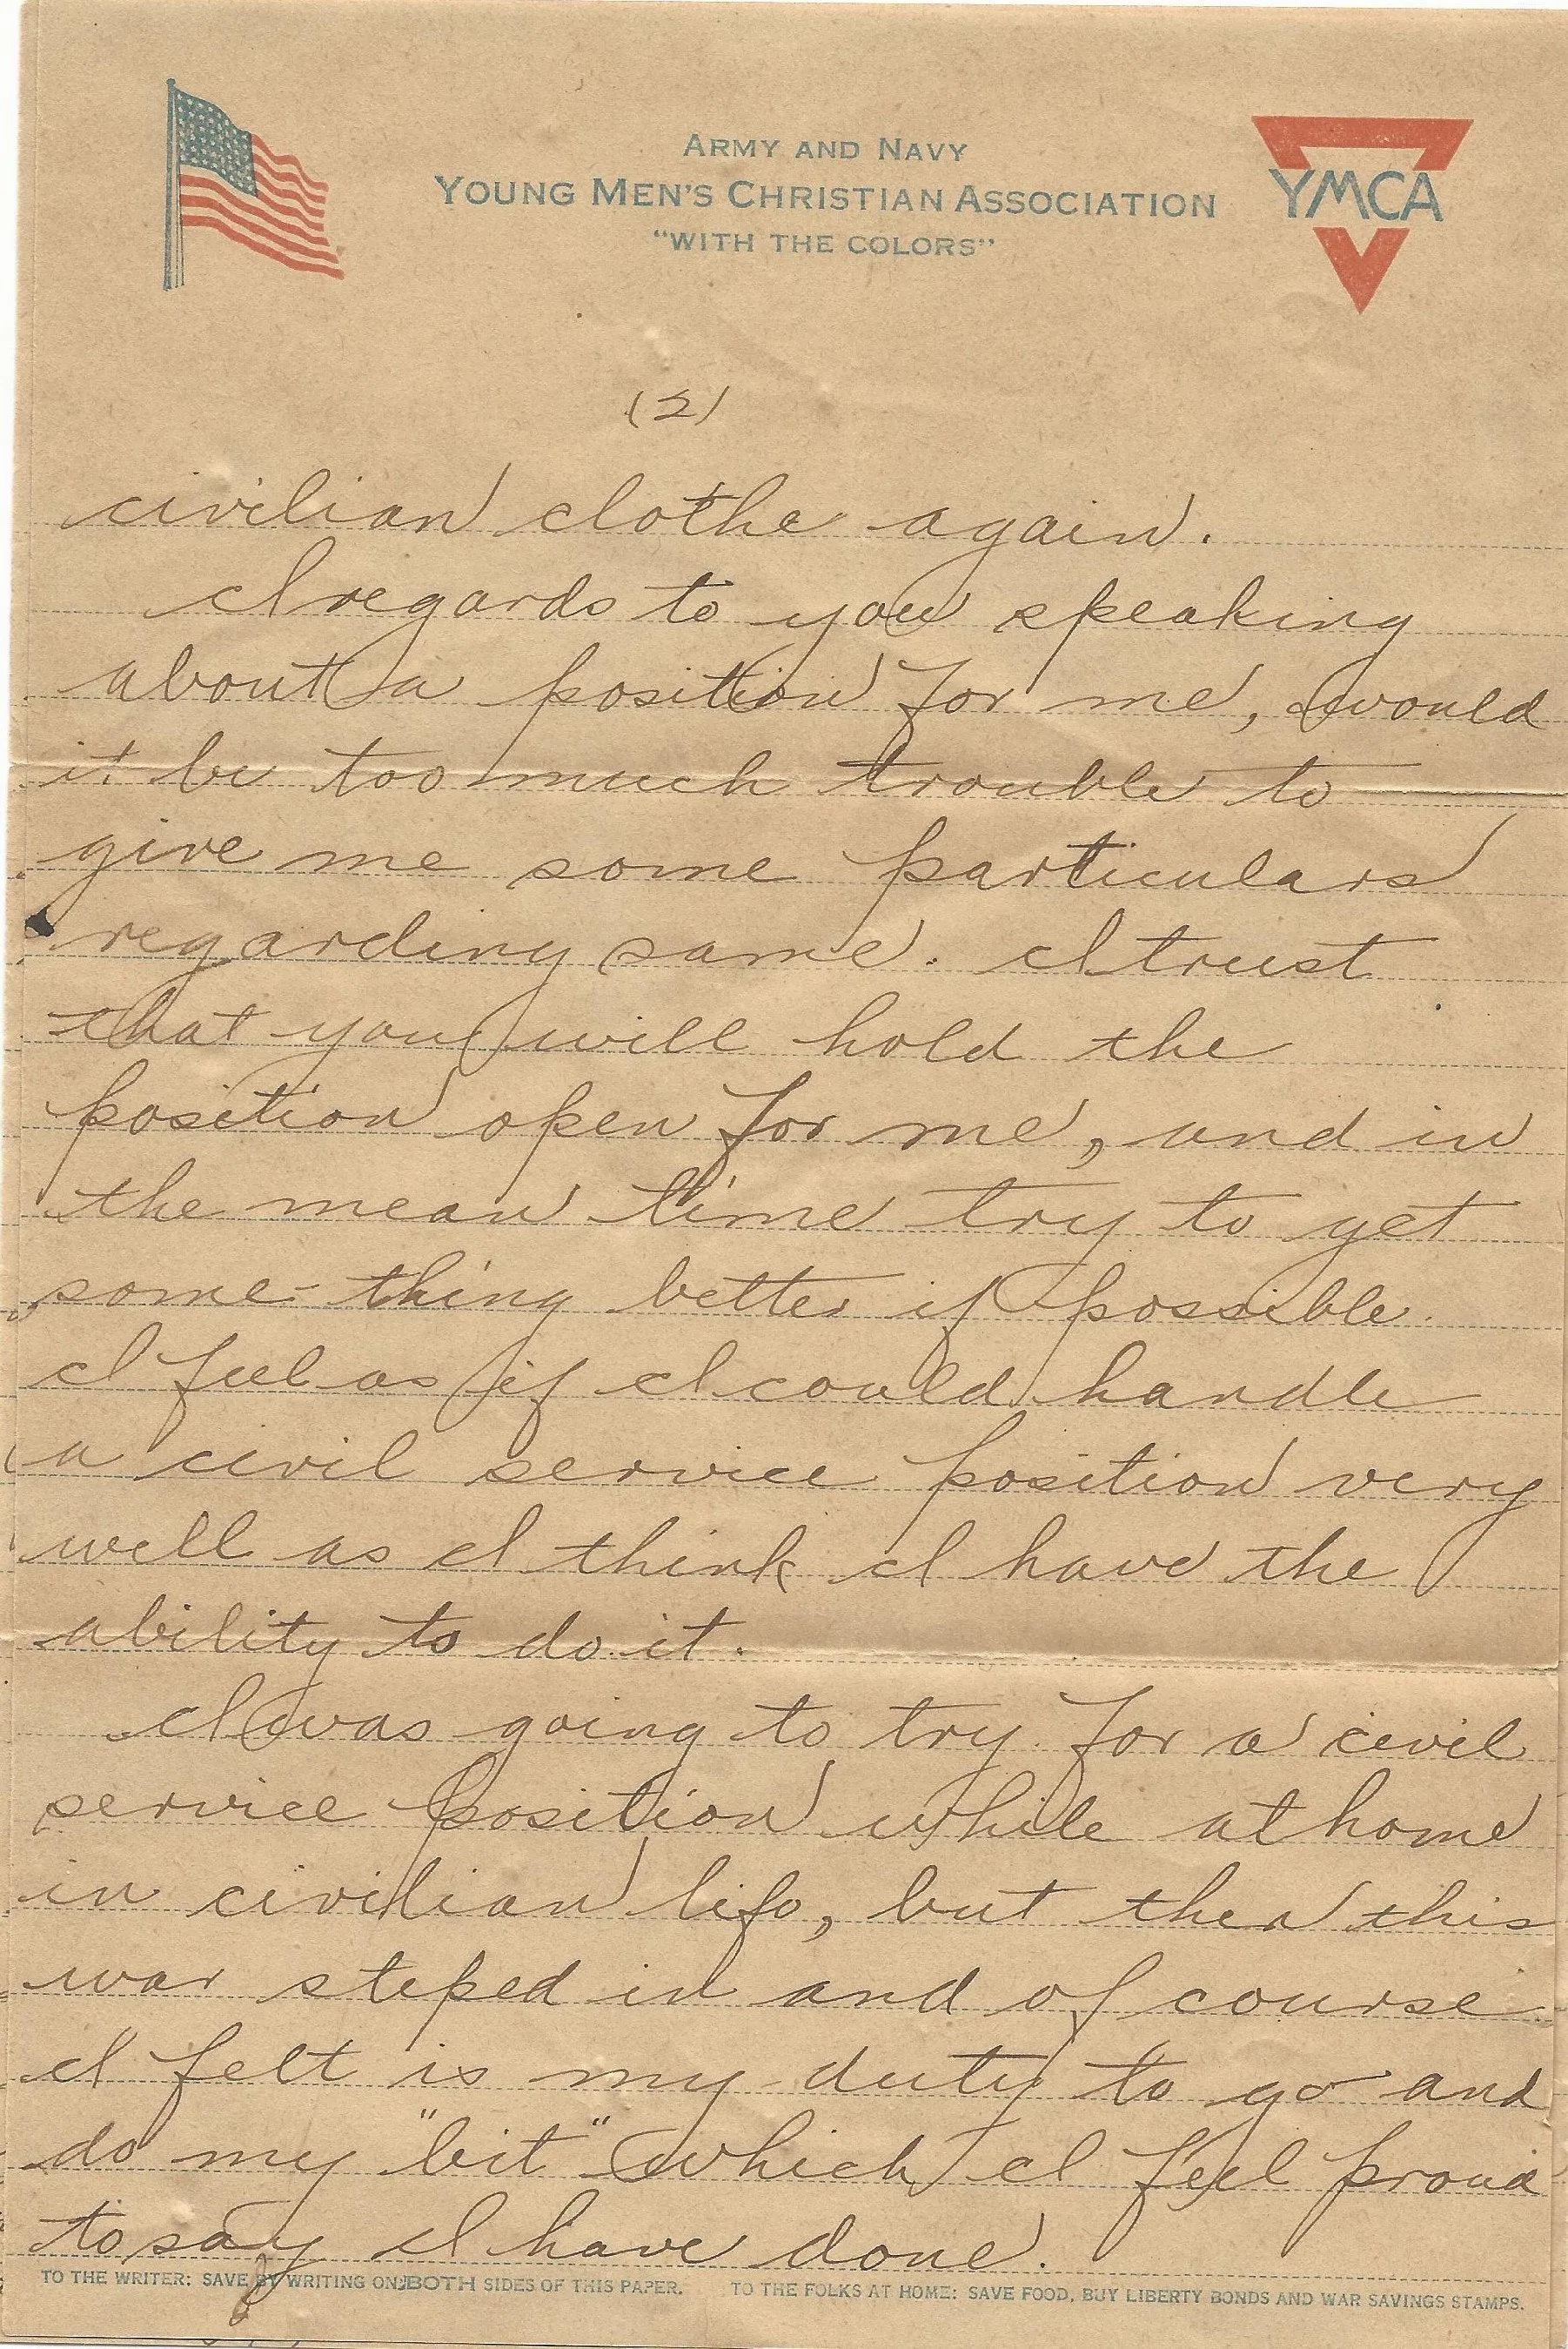 ARMY AND NAVY
YOUNG MEN'S CHRISTIAN ASSOCIATION
"WITH THE COLORS"
YMCA
(2)
civilian clothe again.
I regards to you speaking
about a position for me, would
it be too much trouble to
give me some particulars
regarding same. I trust
that you will hold the
position open for me, and in
the mean time try to get
some-thing better if possible.
I feel as if I could handle
a civil service position very
well as I think I have the
ability to do it.
I was going to try for a civil
service position while at home
in civilian life, but then this
war steped in and of course
I felt is my duty to go and
do my "bit" which I feel proud
to say I have done.
TO THE WRITER: SAVE BY WRITING ON BOTH SIDES OF THIS PAPER. TO THE FOLKS AT HOME: SAVE FOOD, BUY LIBERTY BONDS AND WAR SAVINGS STAMPS.